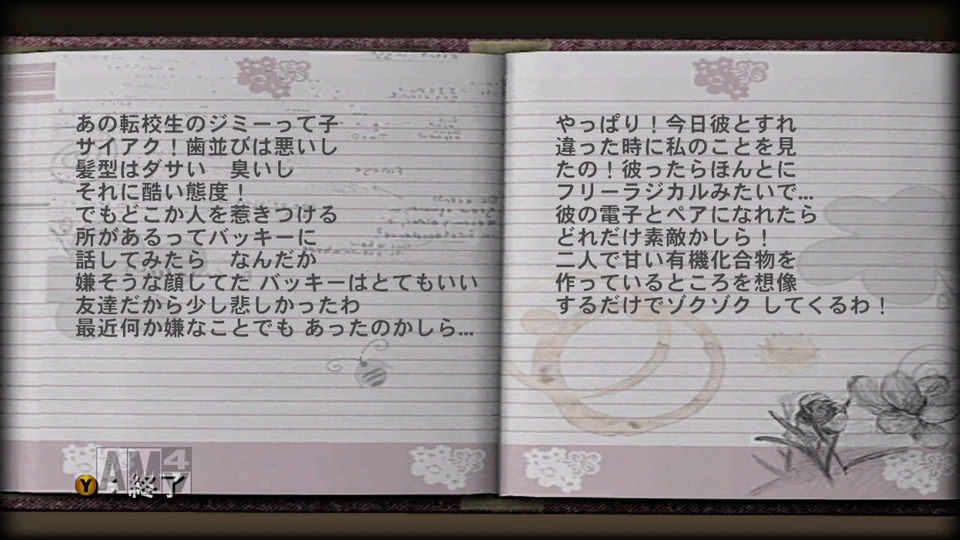 あの転校生のジミーって子
サイアク！歯並びは悪いし
髪型はダサい　臭いし
それに酷い態度！
でもどこか人を惹きつける
所があるってバッキーに
話してみたら　なんだか
嫌そうな顔してた バッキーはとてもいい
友達だから少し悲しかったわ
最近何か嫌なことでも あったのかしら…
やっぱり！今日彼とすれ
違った時に私のことを見
たの！彼ったらほんとに
フリーラジカルみたいで…
彼の電子とペアになれたら
どれだけ素敵かしら！
二人で甘い有機化合物を
作っているところを想像
するだけでゾクゾク してくるわ！
AM4
Y：終了